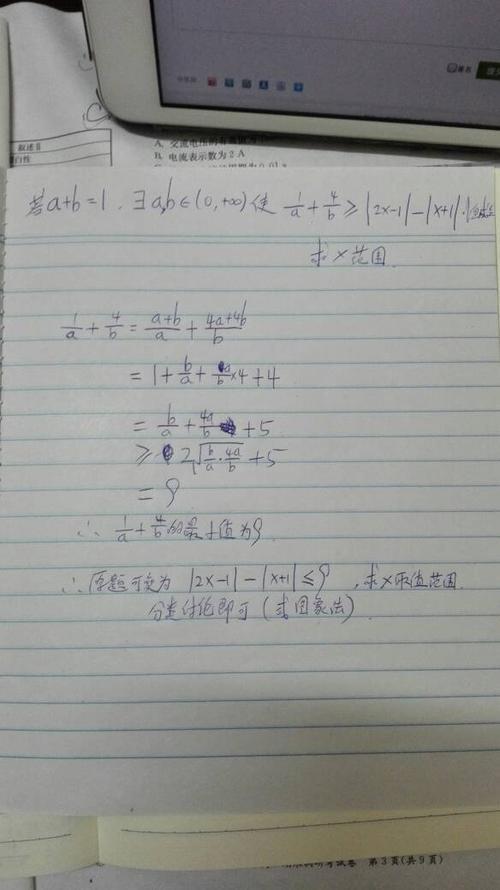 叙述Ⅱ
A. 交流电压的有效值为
B. 电流表示数为2 A
若a+b=1. ∃a,b∈(0,+∞)使 1/a + 4/b ≥ |2x-1| - |x+1|
求x范围.
1/a + 4/b = (a+b)/a + (4a+4b)/b
= 1 + b/a + a/b ×4 + 4
= b/a + 4a/b + 5
≥ 2√(b/a · 4a/b) + 5
= 9
∴ 1/a + 4/b 的最小值为9
∴ 原题可变为 |2x-1| - |x+1| ≤ 9 , 求x取值范围.
分类讨论即可(或图象法)
第3页(共9页)